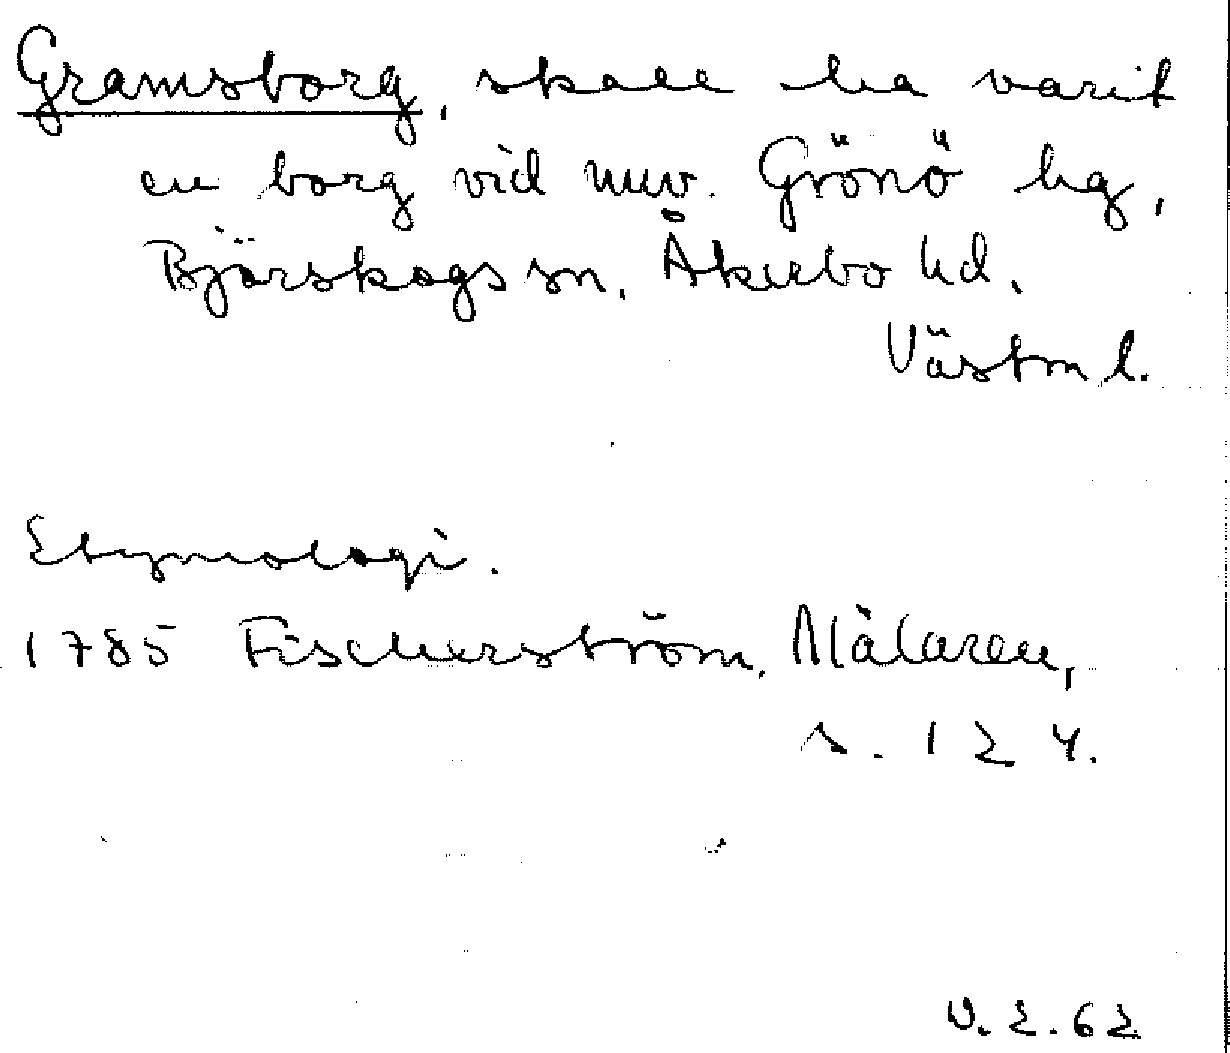 Gramsborg, skall ha varit
en borg vid nuv. Grönö hg,
Björskogs sn, Åkerbo hd.
Västm l.
Etymologi.
1785 Fischerström, Mälaren,
s. 124.
V. E. 62